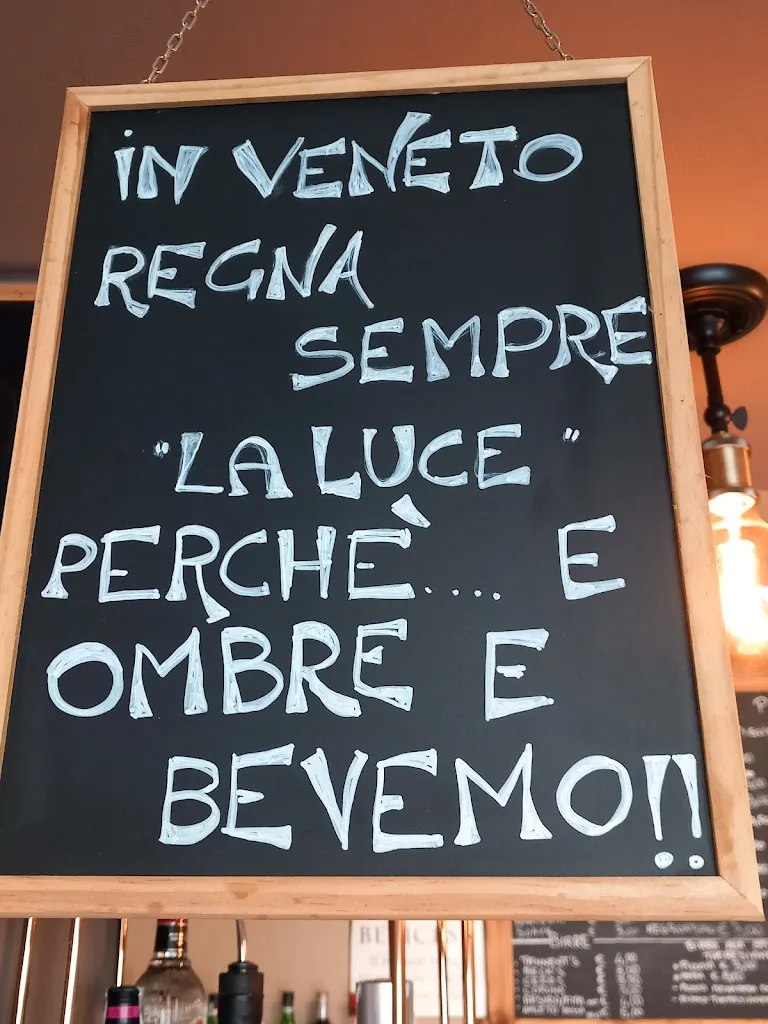 iN VENETO
REGNA
SEMPRE
"LA LUCE"
PERCHÈ.... E
OMBRE E
BEVEMO!!
BIRRE